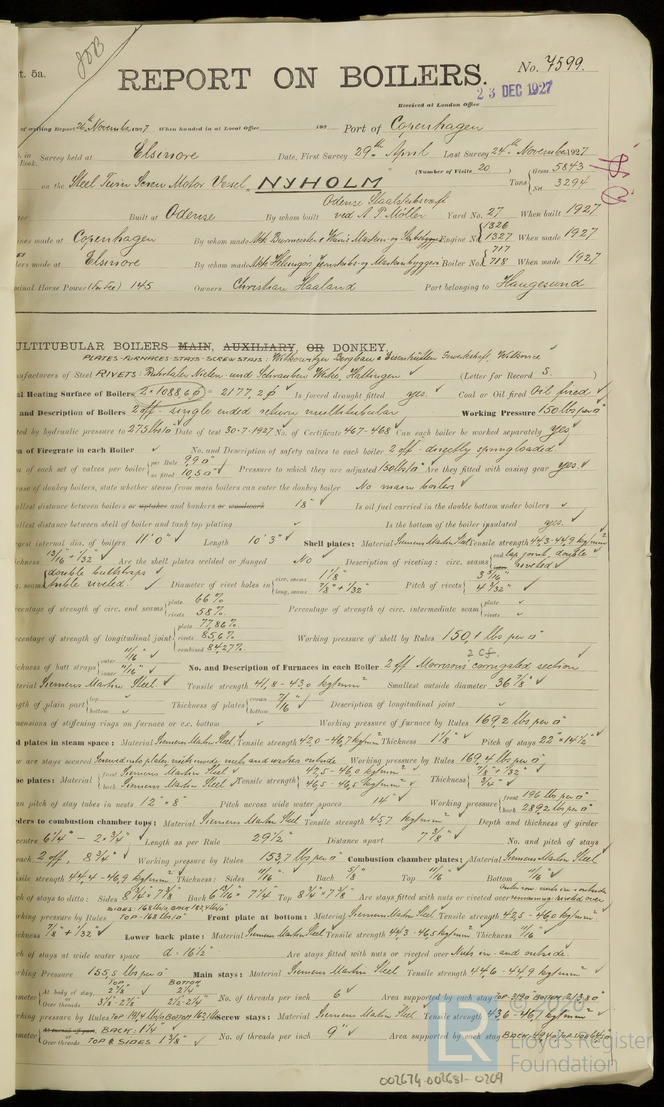 JOB
t. 5a.
REPORT ON BOILERS.
No. 7599.
23 DEC 1927
Received at London Office
of writing Report 26th November 1927 When handed in at Local Office 192 Port of Copenhagen
in Book. Survey held at Elsinore Date, First Survey 29th April Last Survey 24th November 1927
(Number of Visits 20)
on the Steel Twin Screw Motor Vessel "NYHOLM" Tons Gross 5843 Net 3294
Built at Odense By whom built Odense Staalskibsværft ved A. P. Möller Yard No. 27 When built 1927
made at Copenhagen By whom made Engine No. 1326 1327 When made 1927
made at Elsinore By whom made Boiler No. 717 718 When made 1927
Horse Power 145 Owners Christian Haaland Port belonging to Haugesund
MULTITUBULAR BOILERS MAIN, AUXILIARY, OR DONKEY.
PLATES-FURNACES-STAYS-SCREW STAYS: Witkowitzer Bergbau & Eisenhütten Gewerkschaft, Witkowitz
Manufacturers of Steel RIVETS: (Letter for Record S.)
al Heating Surface of Boilers 2 × 1088,6 = 2177,2 Is forced draught fitted yes. Coal or Oil fired Oil fired
and Description of Boilers 2 off single ended return multitubular Working Pressure 150 lbs per □"
ted by hydraulic pressure to 275 lbs Date of test 30-7-1927 No. of Certificate 467-468 Can each boiler be worked separately yes
of Firegrate in each Boiler No. and Description of safety valves to each boiler 2 off - directly springloaded
a of each set of valves per boiler per Rule as fitted Pressure to which they are adjusted 150 lbs Are they fitted with easing gear yes.
case of donkey boilers, state whether steam from main boilers can enter the donkey boiler No main boilers
allest distance between boilers or uptakes and bunkers or woodwork 18" Is oil fuel carried in the double bottom under boilers
allest distance between shell of boiler and tank top plating Is the bottom of the boiler insulated yes.
gest internal dia. of boilers 11' 0" Length 10' 3" Shell plates: Material Siemens Martin Steel Tensile strength 44,3-44,9 kg/mm²
ickness 13/16" + 1/32" Are the shell plates welded or flanged No Description of riveting: circ. seams end lap joint, double riveted
seams double buttstraps Diameter of rivet holes in circ. seams 1 1/8" long. seams 7/8" + 1/32" Pitch of rivets
centage of strength of circ. end seams plate 66% rivets 58% Percentage of strength of circ. intermediate seam plate rivets
centage of strength of longitudinal joint plate 77,86% rivets 85,6% combined 84,27% Working pressure of shell by Rules 150,1 lbs per □"
2 C.F.
ickness of butt straps outer 11/16" inner 11/16" No. and Description of Furnaces in each Boiler 2 off Morrisons corrugated section
terial Siemens Martin Steel Tensile strength 41,8-43,0 kg/mm² Smallest outside diameter 36 7/8"
gth of plain part top bottom Thickness of plates crown bottom 7/16" Description of longitudinal joint
imensions of stiffening rings on furnace or c.c. bottom Working pressure of furnace by Rules 169,2 lbs per □"
d plates in steam space: Material Siemens Martin Steel Tensile strength 42,0-46,7 kg/mm² Thickness 1 1/8" Pitch of stays 22" × 14 1/2"
w are stays secured Screwed into plates, nuts inside, nuts and washers outside Working pressure by Rules 169,4 lbs per □"
be plates: Material front Siemens Martin Steel back Siemens Martin Steel Tensile strength 42,5-46,0 kg/mm² 46,5-46,5 kg/mm² Thickness 7/8" + 1/32" 3/4"
an pitch of stay tubes in nests 12" × 8" Pitch across wide water spaces 14" Working pressure front 196 lbs per □" back 289,2 lbs per □"
rders to combustion chamber tops: Material Siemens Martin Steel Tensile strength 45,7 kg/mm² Depth and thickness of girder
centre 6 1/4" - 2 × 3/4" Length as per Rule 29 1/2" Distance apart 7 3/8" No. and pitch of stays
each 2 off, 8 3/4" Working pressure by Rules 153,7 lbs per □" Combustion chamber plates: Material Siemens Martin Steel
sile strength 44,4-46,9 kg/mm² Thickness: Sides 11/16" Back 5/8" Top 11/16" Bottom 11/16"
ch of stays to ditto: Sides Back Top Are stays fitted with nuts or riveted over
rking pressure by Rules TOP-168 lbs/□" Front plate at bottom: Material Siemens Martin Steel Tensile strength 42,5-46,0 kg/mm²
ickness 7/8" + 1/32" Lower back plate: Material Siemens Martin Steel Tensile strength 44,3-46,5 kg/mm² Thickness 11/16"
ch of stays at wide water space d = 16 1/2" Are stays fitted with nuts or riveted over Nuts in- and outside.
king Pressure 155,5 lbs per □" Main stays: Material Siemens Martin Steel Tensile strength 44,6-44,9 kg/mm²
meter At body of stay, or Over threads TOP BOTTOM No. of threads per inch 6 Area supported by each stay
king pressure by Rules Screw stays: Material Siemens Martin Steel Tensile strength 43,6-46, kg/mm²
meter At turned off part, or Over threads BACK: 1 1/4" TOP & SIDES 1 3/8" No. of threads per inch 9" Area supported by each stay
© 2020
LR
Lloyd's Register
Foundation
002674-002681-0269